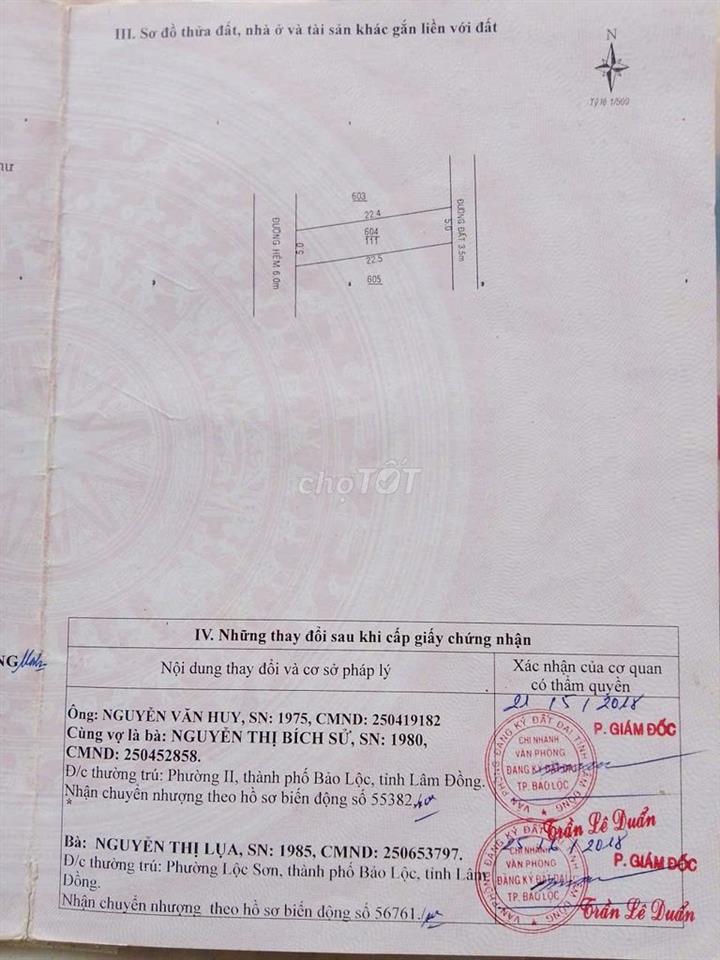 III. Sơ đồ thửa đất, nhà ở và tài sản khác gắn liền với đất
N
Tỷ lệ 1/500
ĐƯỜNG HẺM 6.0m
603
22.4
5.0
604
111
5.0
22.5
605
ĐƯỜNG ĐẤT 3.5m
chợTỐT
IV. Những thay đổi sau khi cấp giấy chứng nhận
Nội dung thay đổi và cơ sở pháp lý
Xác nhận của cơ quan
có thẩm quyền
Ông: NGUYỄN VĂN HUY, SN: 1975, CMND: 250419182
Cùng vợ là bà: NGUYỄN THỊ BÍCH SỬ, SN: 1980,
CMND: 250452858.
Đ/c thường trú: Phường II, thành phố Bảo Lộc, tỉnh Lâm Đồng.
Nhận chuyển nhượng theo hồ sơ biến động số 55382
*
21 / 5 / 2018
P. GIÁM ĐỐC
VĂN PHÒNG ĐĂNG KÝ ĐẤT ĐAI TỈNH LÂM ĐỒNG
CHI NHÁNH
VĂN PHÒNG
ĐĂNG KÝ ĐẤT ĐAI
TP. BẢO LỘC
Trần Lê Duẩn
Bà: NGUYỄN THỊ LỤA, SN: 1985, CMND: 250653797.
Đ/c thường trú: Phường Lộc Sơn, thành phố Bảo Lộc, tỉnh Lâm
Đồng.
Nhận chuyển nhượng theo hồ sơ biến động số 56761.
2018
P. GIÁM ĐỐC
VĂN PHÒNG ĐĂNG KÝ ĐẤT ĐAI TỈNH LÂM ĐỒNG
CHI NHÁNH
VĂN PHÒNG
ĐĂNG KÝ ĐẤT ĐAI
TP. BẢO LỘC
Trần Lê Duẩn